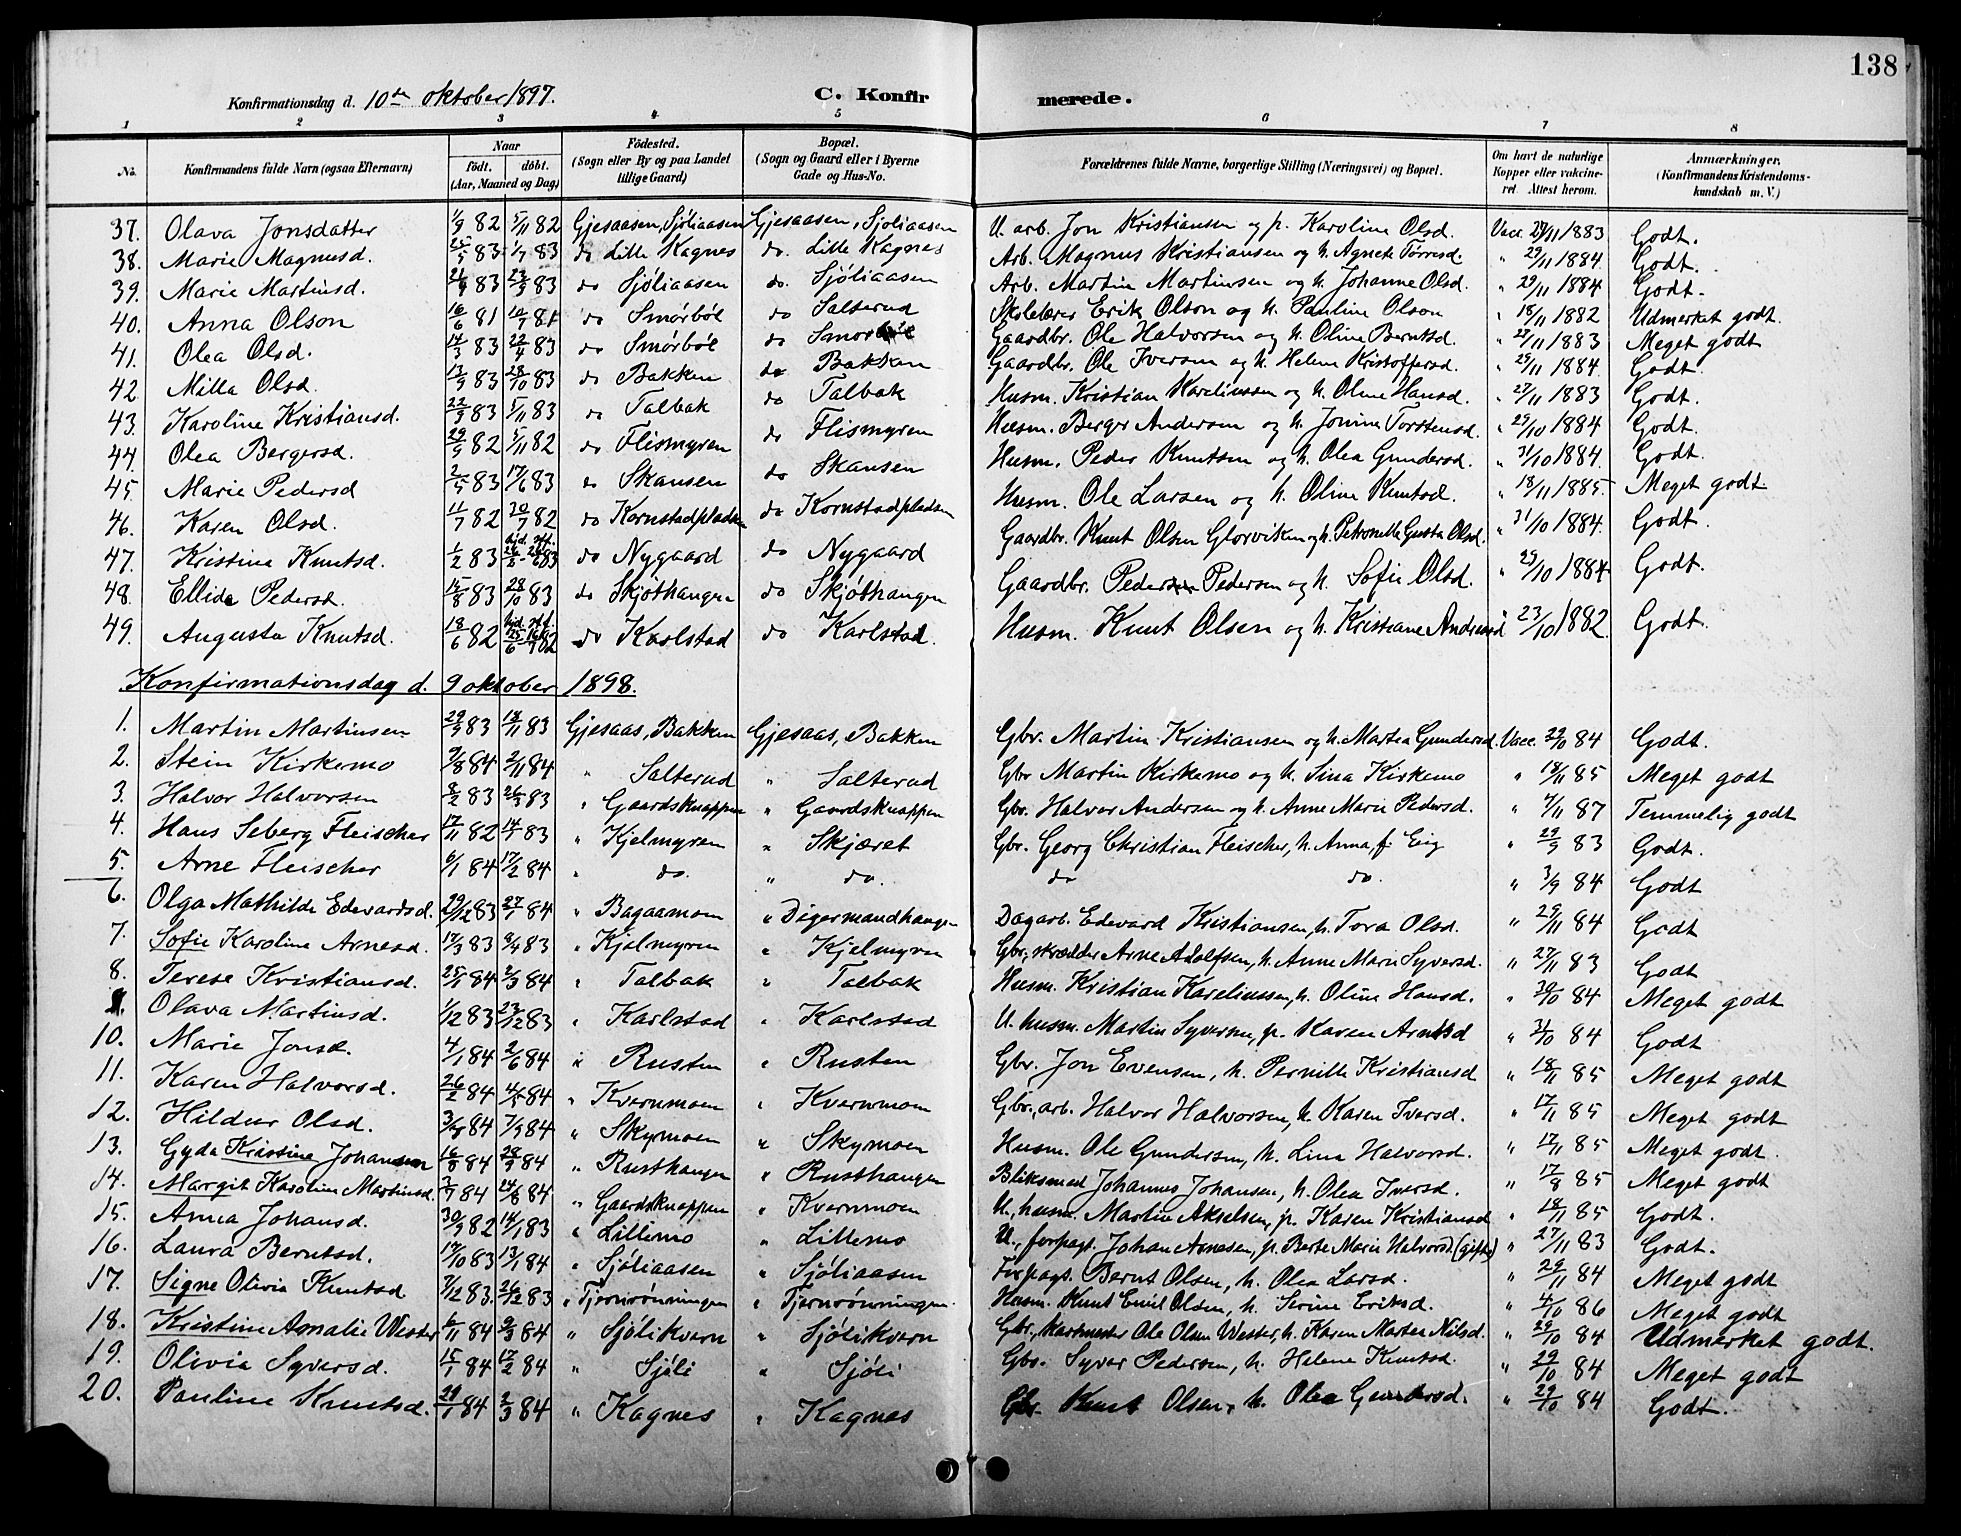 138
Konfirmationsdag d. 10de oktober 1897. C. Konfirmerede.
1 2 3 4 5 6 7 8
No. Konfirmandens fulde Navn (ogsaa Efternavn) Naar født. døbt. (Aar, Maaned og Dag) Fødested. (Sogn eller By og paa Landet tillige Gaard) Bopæl. (Sogn og Gaard eller i Byerne Gade og Hus-No. Forældrenes fulde Navne, borgerlige Stilling (Næringsvei) og Bopæl. Om havt de naturlige Kopper eller vakcineret. Attest herom. Anmærkninger. (Konfirmandens Kristendomskundskab m. V.)
37. Olava Jonsdatter 1/9 82 5/11 82 Gjesaasen, Sjøliaasen Gjesaasen, Sjøliaasen U. arb. Jon Kristiansen og p. Karoline Olsd. Vacc. 29/11 1883 Godt.
38. Marie Magnusd. 25/5 83 1/7 83 do Lille Kagnes do. Lille Kagnes Arb. Magnus Kristiansen og h. Agnete Tørresd. " 29/11 1884. Godt.
39. Marie Martinsd. 83 23/9 83 do Sjøliaasen do. Sjøliaasen Arb. Martin Martinsen og h. Johanne Olsd. " 29/11 1884 Godt.
40. Anna Olson 16/6 81 10/7 81 do Smørbøl do Salterud Skolelærer Erik Olson og h. Pauline Olson " 18/11 1882 Udmerket godt.
41. Olea Olsd. 14/3 83 22/4 83 do Smørbøl do Smørbøl Gaardbr. Ole Halvorsen og h. Oline Berntsd. " 27/11 1883 Meget godt
42. Milla Olsd. 13/9 83 28/10 83 do Bakken do Bakken Gaardbr. Ole Iversen og h. Helene Kristoffersd. " 29/11 1884. Godt.
43. Karoline Kristiansd. 22/9 83 5/11 83 do Talbak do Talbak Husm. Kristian Kareliussen og h. Oline Hansd. " 27/11 1883 Godt.
44. Olea Bergersd. 29/9 82 5/11 82 do Flismyren do Flismyren Husm. Berger Andersen og h. Jonine Torstensd. " 29/10 1884 Godt.
45. Marie Pedersd 2/5 83 17/6 83 do Skansen do Skansen Husm. Peder Knutsen og h. Olea Gundersd. " 31/10 1884. Godt.
46. Karen Olsd. 11/7 82 30/7 82 do Kornstadpladsen do Kornstadpladsen Husm. Ole Larsen og h. Oline Knutsd. " 18/11 1885. Meget godt
47. Kristine Knutsd. 1/2 83 83 do Nygaard do Nygaard Gaardbr. Knut Olsen Glorviken og h. Petronelle Gusta Olsd. " 31/10 1884. Godt
48. Ellide Pedersd. 15/8 83 28/10 83 do Skjøthangen do Skjøthangen Gaardbr. Peder Pedersen og h. Sofie Olsd. " 29/10 1884 Godt.
49. Augusta Knutsd. 18/6 82 82 do Karlstad do Karlstad. Husm. Knut Olsen og h. Kristiane Andreasd " 23/10 1882. Godt.
Konfirmationsdag d. 9 oktober 1898.
1. Martin Martinsen 29/9 83 18/11 83 Gjesaas, Bakken Gjesaas, Bakken Gbr. Martin Kristiansen og h. Martea Gundersd. Vacc. 29/10 84 Godt.
2. Stein Kirkemo 7/8 84 2/11 84 " Salterud " Salterud Gbr Martin Kirkemo og h. Sina Kirkemo " 18/11 85 Meget godt
3. Halvor Halvorsen 8/2 83 26/3 83 " Gaardsknappen " Gaardsknappen Gbr. Halvor Andersen og h. Anne Marie Pedersd. " 4/11 87 Temmelig godt
4. Hans Seberg Fleischer 17/11 82 14/1 83 " Kjelmyren " Skjæret Gbr. Georg Christian Fleischer, h. Anna, f. Eng " 29/9 83 Godt.
5. Arne Fleischer 6/1 84 17/2 84 " do. " do. do do. " 3/9 84 Godt
6. Olga Mathilde Edevardsd. 29/12 83 27/1 84 " Bagaamoen " Digermandhangen Dagarb. Edevard Kristiansen, h. Tora Olsd. " 29/11 84 Godt
7. Sofie Karoline Arnesd. 17/3 83 9/4 83 " Kjelmyren " Kjelmyren Gbr., skrædder Arne Adolfsen, h. Anne Marie Syversd. " 27/11 83 Godt
8. Terese Kristiansd. 25/1 84 2/3 84 " Talbak " Talbak Husm. Kristian Kareliussen, h. Oline Hansd. " 30/10 84 Meget godt
9. Olava Martinsd. 1/12 83 23/12 83 " Karlstad " Karlstad U. husm. Martin Syversen, p. Karen Arntsd " 31/10 84 Godt
10. Marie Jonsd. 4/1 84 2/6 84 " Rusten " Rusten Gbr. Jon Evensen, h. Pernille Kristiansd " 18/11 85 Meget godt
11. Karen Halvorsd. 26/2 84 4/5 84 " Kvernmoen " Kvernmoen Gbr., arb. Halvor Halvorsen, h. Karen Iversd. " 17/11 85 Meget godt
12. Hildur Olsd. 84 7/9 84 " Skymoen " Skymoen Husm. Ole Gundersen, h. Lina Halvorsd. " 17/11 85 Meget godt.
13. Gyda Kristine Johansen 16/8 84 28/9 84 " Rusthangen " Rusthangen Bliksmed Johannes Johansen, h. Olea Iversd. " 17/8 85 Meget godt
14. Margit Karoline Martinsd. 3/7 84 14/8 84 " Gaardsknappen " Kvernmoen U., husm. Martin Akselsen, p. Karen Kristiansd " 18/11 85 Godt.
15. Anna Johansd. 30/9 82 14/1 83 " Lillemo " Lillemo U., forpagt. Johan Arnesen, p. Berte Marie Halvorsd. (gift) " 27/11 83 Godt.
16. Laura Berntsd. 17/10 83 13/1 84 " Sjøliaasen " Sjøliaasen Forpagt. Bernt Olsen, h. Olea Larsd. " 29/11 84 Meget godt
17. Signe Olivia Knutsd 7/12 83. 26/12 83 " Tjernrønningen " Tjernrønningen. Husm. Knut Emil Olsen, h. Serine Eriksd. " 4/10 86 Meget godt
18. Kristine Amalie Wester 84 9/3 84 " Sjølikvern " Sjølikvern Gbr., Ole Olsen Wester, h. Karen Martea Nilsd. " 29/10 84 Udmerket godt.
19. Olivia Syversd. 15/1 84 17/2 84 " Sjøli " Sjøli Gbr. Syver Pedersen, h. Helene Knutsd. " 29/10 84 Meget godt
20. Pauline Knutsd. 29/1 84 2/3 84 " Kagnes " Kagnes Gbr. Knut Olsen, h. Olea Gundersd. " 29/10 84 Godt.